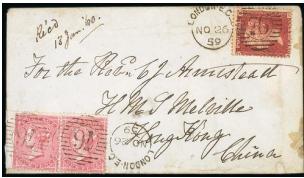 Rec'd
13 Jan '60.
LONDON-E.C
NO 26
59
For the Revd. C J Armistead
H M S Melville
Hong Kong
China
LONDON-E.C
NO 26
59